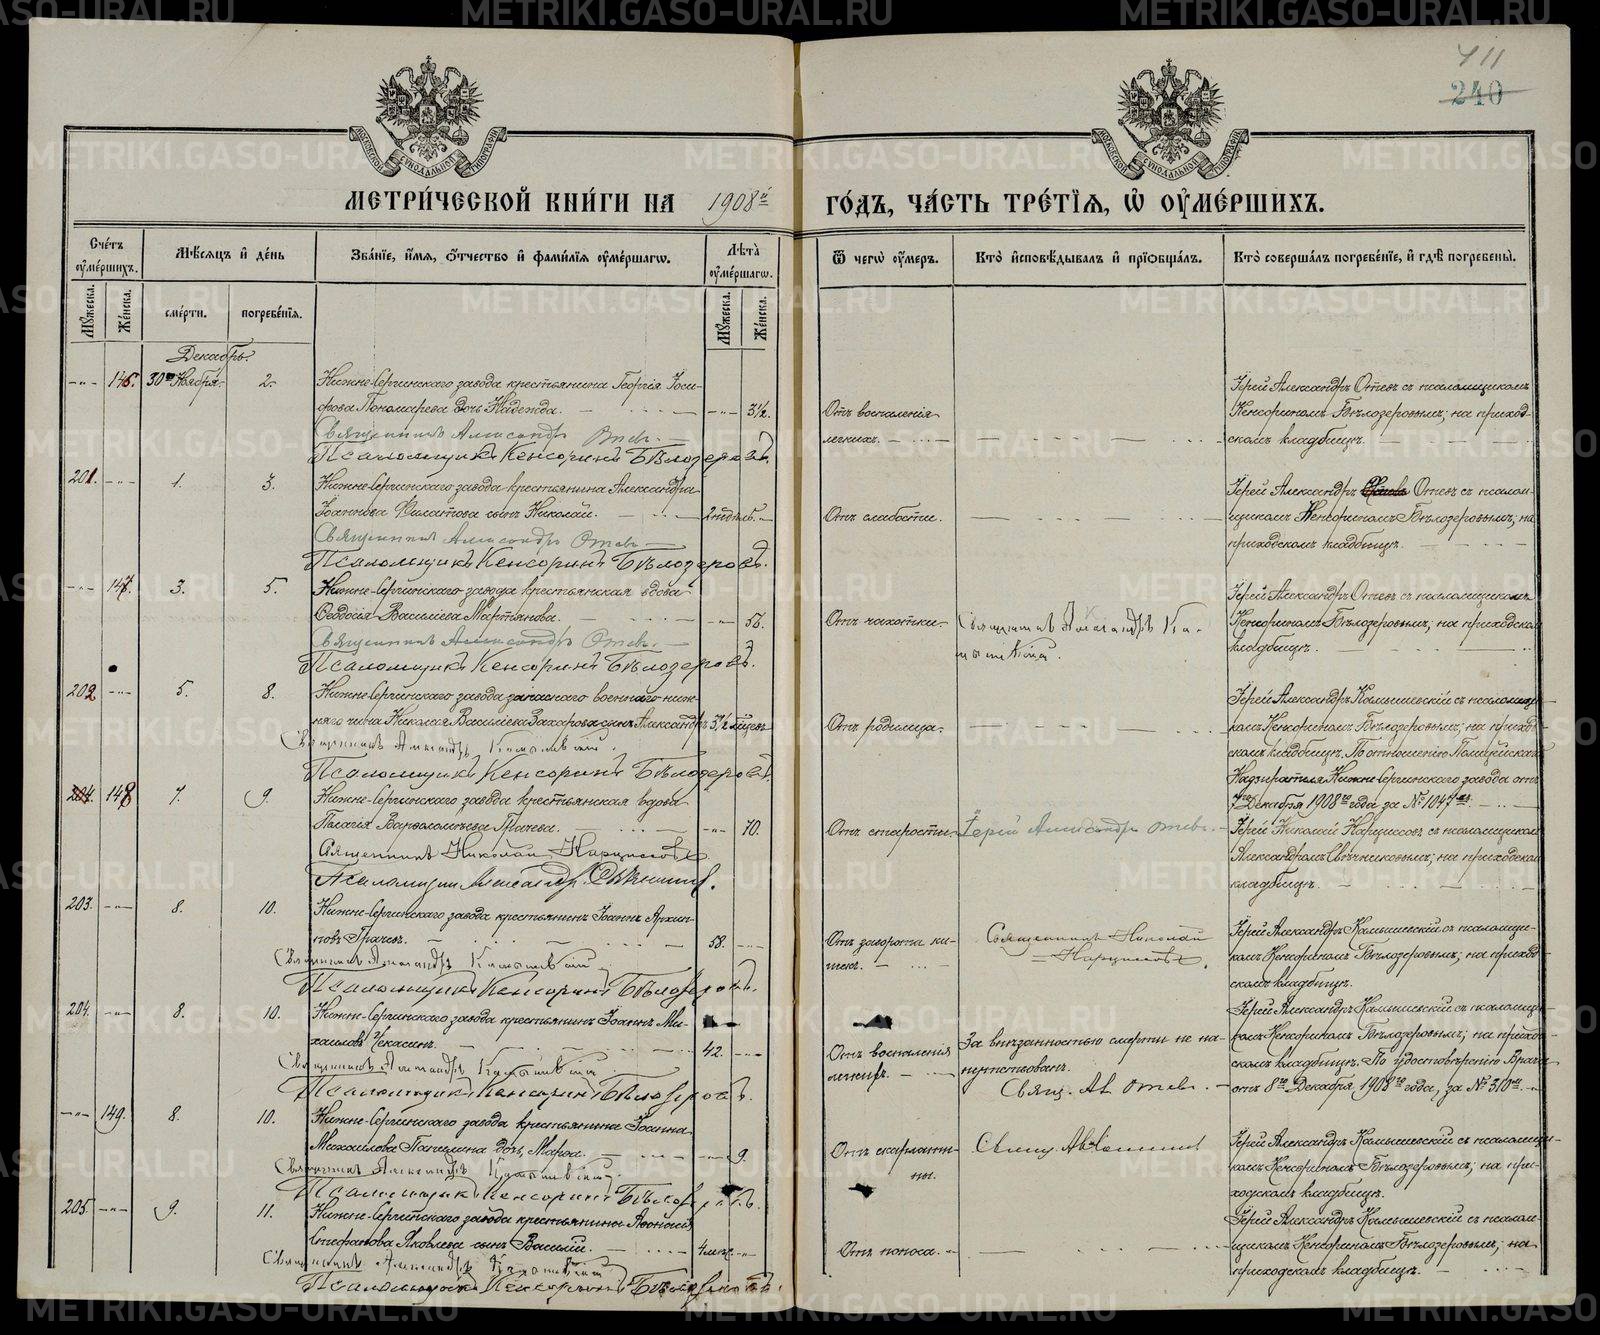 METRIKI.GASO-URAL.RU
411
240
МОСКОВСКОЙ СѴНОДАЛЬНОЙ ТИПОГРАФІИ
МЕТРИ́ЧЕСКОЙ КНИ́ГИ НА 1908й ГО́ДЪ, ЧА́СТЬ ТРЕ́ТІѦ, Ѽ ОУ҆МЕ́РШИХЪ.
Сче́тъ оу҆ме́ршихъ.
Мѣ́сѧцъ и҆ де́нь
Зва́нїе, и҆́мѧ, ѻ҆́тчество и҆ фами́лїѧ оу҆ме́ршагѡ.
Лѣ́та оу҆ме́ршагѡ.
Ѿ чегѡ̀ оу҆́меръ.
Кто̀ и҆сповѣ́дывалъ и҆ прїѡбща́лъ.
Кто̀ соверша́лъ погребе́нїе, и҆ гдѣ̀ погребены̀.
Мꙋ́жеска.
Же́нска.
сме́рти.
погребе́нїѧ.
Мꙋ́жеска.
Же́нска.
Декабрь.
146. 30го Ноября 2.
Нижне-Сергинскаго завода крестьянина Георгія Іоси-
фова Пономарева дочь Надежда. 3½.
Священникъ Александръ Отевъ.
Псаломщикъ Кенсоринъ Бѣлозеровъ.
Отъ воспаленія
легкихъ.
Іерей Александръ Отевъ съ псаломщикомъ
Кенсориномъ Бѣлозеровымъ; на приход-
скомъ кладбищѣ.
201. 1. 3.
Нижне-Сергинскаго завода крестьянина Александра
Іоаннова Филатова сынъ Николай. 2 недѣл.
Священникъ Александръ Отевъ
Псаломщикъ Кенсоринъ Бѣлозеровъ.
Отъ слабости.
Іерей Александръ Отевъ съ псалом-
щикомъ Кенсориномъ Бѣлозеровымъ; на
приходскомъ кладбищѣ.
147. 3. 5.
Нижне-Сергинскаго завода крестьянская вдова
Ѳеодосія Васильева Мартьянова. 58.
Священникъ Александръ Отевъ.
Псаломщикъ Кенсоринъ Бѣлозеровъ.
Отъ чахотки.
Священникъ Александръ Ка-
мышевскій.
Іерей Александръ Отевъ съ псаломщикомъ
Кенсориномъ Бѣлозеровымъ; на приходском
кладбищѣ.
202 5. 8.
Нижне-Сергинскаго завода запаснаго военнаго ниж-
няго чина Николая Васильева Захарова сынъ Александръ 3½ мѣсяц.
Священникъ Александръ Камышевскій.
Псаломщикъ Кенсоринъ Бѣлозеровъ.
Отъ родимца.
Іерей Александръ Камышевскій съ псаломщи-
комъ Кенсориномъ Бѣлозеровымъ; на приход-
скомъ кладбищѣ. По отношенію Полицейскаго
Надзирателя Нижне-Сергинскаго завода отъ
7го Декабря 1908го года за № 1047ым.
204. 148 7. 9.
Нижне-Сергинскаго завода крестьянская вдова
Пелагія Варѳоломѣева Грачева. 70.
Священникъ Николай Нарциссовъ.
Псаломщикъ Александръ Свѣчниковъ.
Отъ старости.
Іерей Александръ Отевъ.
Іерей Николай Нарциссовъ съ псаломщикомъ
Александромъ Свѣчниковымъ; на приходском
кладбищѣ.
203. 8. 10.
Нижне-Сергинскаго завода крестьянинъ Іоаннъ Архип-
повъ Грачевъ. 58.
Священникъ Александръ Камышевскій
Псаломщикъ Кенсоринъ Бѣлозеровъ.
Отъ заворота ки-
шекъ.
Священникъ Николай
Нарциссовъ.
Іерей Александръ Камышевскій съ псаломщи-
комъ Кенсориномъ Бѣлозеровымъ; на приход-
скомъ кладбищѣ.
204. 8. 10.
Нижне-Сергинскаго завода крестьянинъ Іоаннъ Ми-
хаиловъ Чекасинъ. 42.
Священникъ Александръ Камышевскій
Псаломщикъ Кенсоринъ Бѣлозеровъ.
Отъ воспаленія
легкихъ.
За внѣзапностью смерти не на-
путствованъ.
Свящ. Ал. Отевъ.
Іерей Александръ Камышевскій съ псаломщи-
комъ Кенсориномъ Бѣлозеровымъ; на приход-
скомъ кладбищѣ. По удостовѣренію Врача
отъ 8го Декабря 1908го года, за № 310ым.
149. 8. 10.
Нижне-Сергинскаго завода крестьянина Іоанна
Михаилова дочь Мавра. 9.
Священникъ Александръ Камышевскій.
Псаломщикъ Кенсоринъ Бѣлозеровъ.
Отъ скарлати-
ны.
Іерей Александръ Камышевскій съ псаломщи-
комъ Кенсориномъ Бѣлозеровымъ; на при-
ходскомъ кладбищѣ.
205. 9. 11.
Нижне-Сергинскаго завода крестьянина Аѳонасія
Стефанова Яковлева сынъ Василій. 4 мѣс.
Священникъ Александръ Камышевскій
Псаломщикъ Кенсоринъ Бѣлозеровъ.
Отъ поноса.
Іерей Александръ Камышевскій съ псалом-
щикомъ Кенсориномъ Бѣлозеровымъ; на
приходскомъ кладбищѣ.